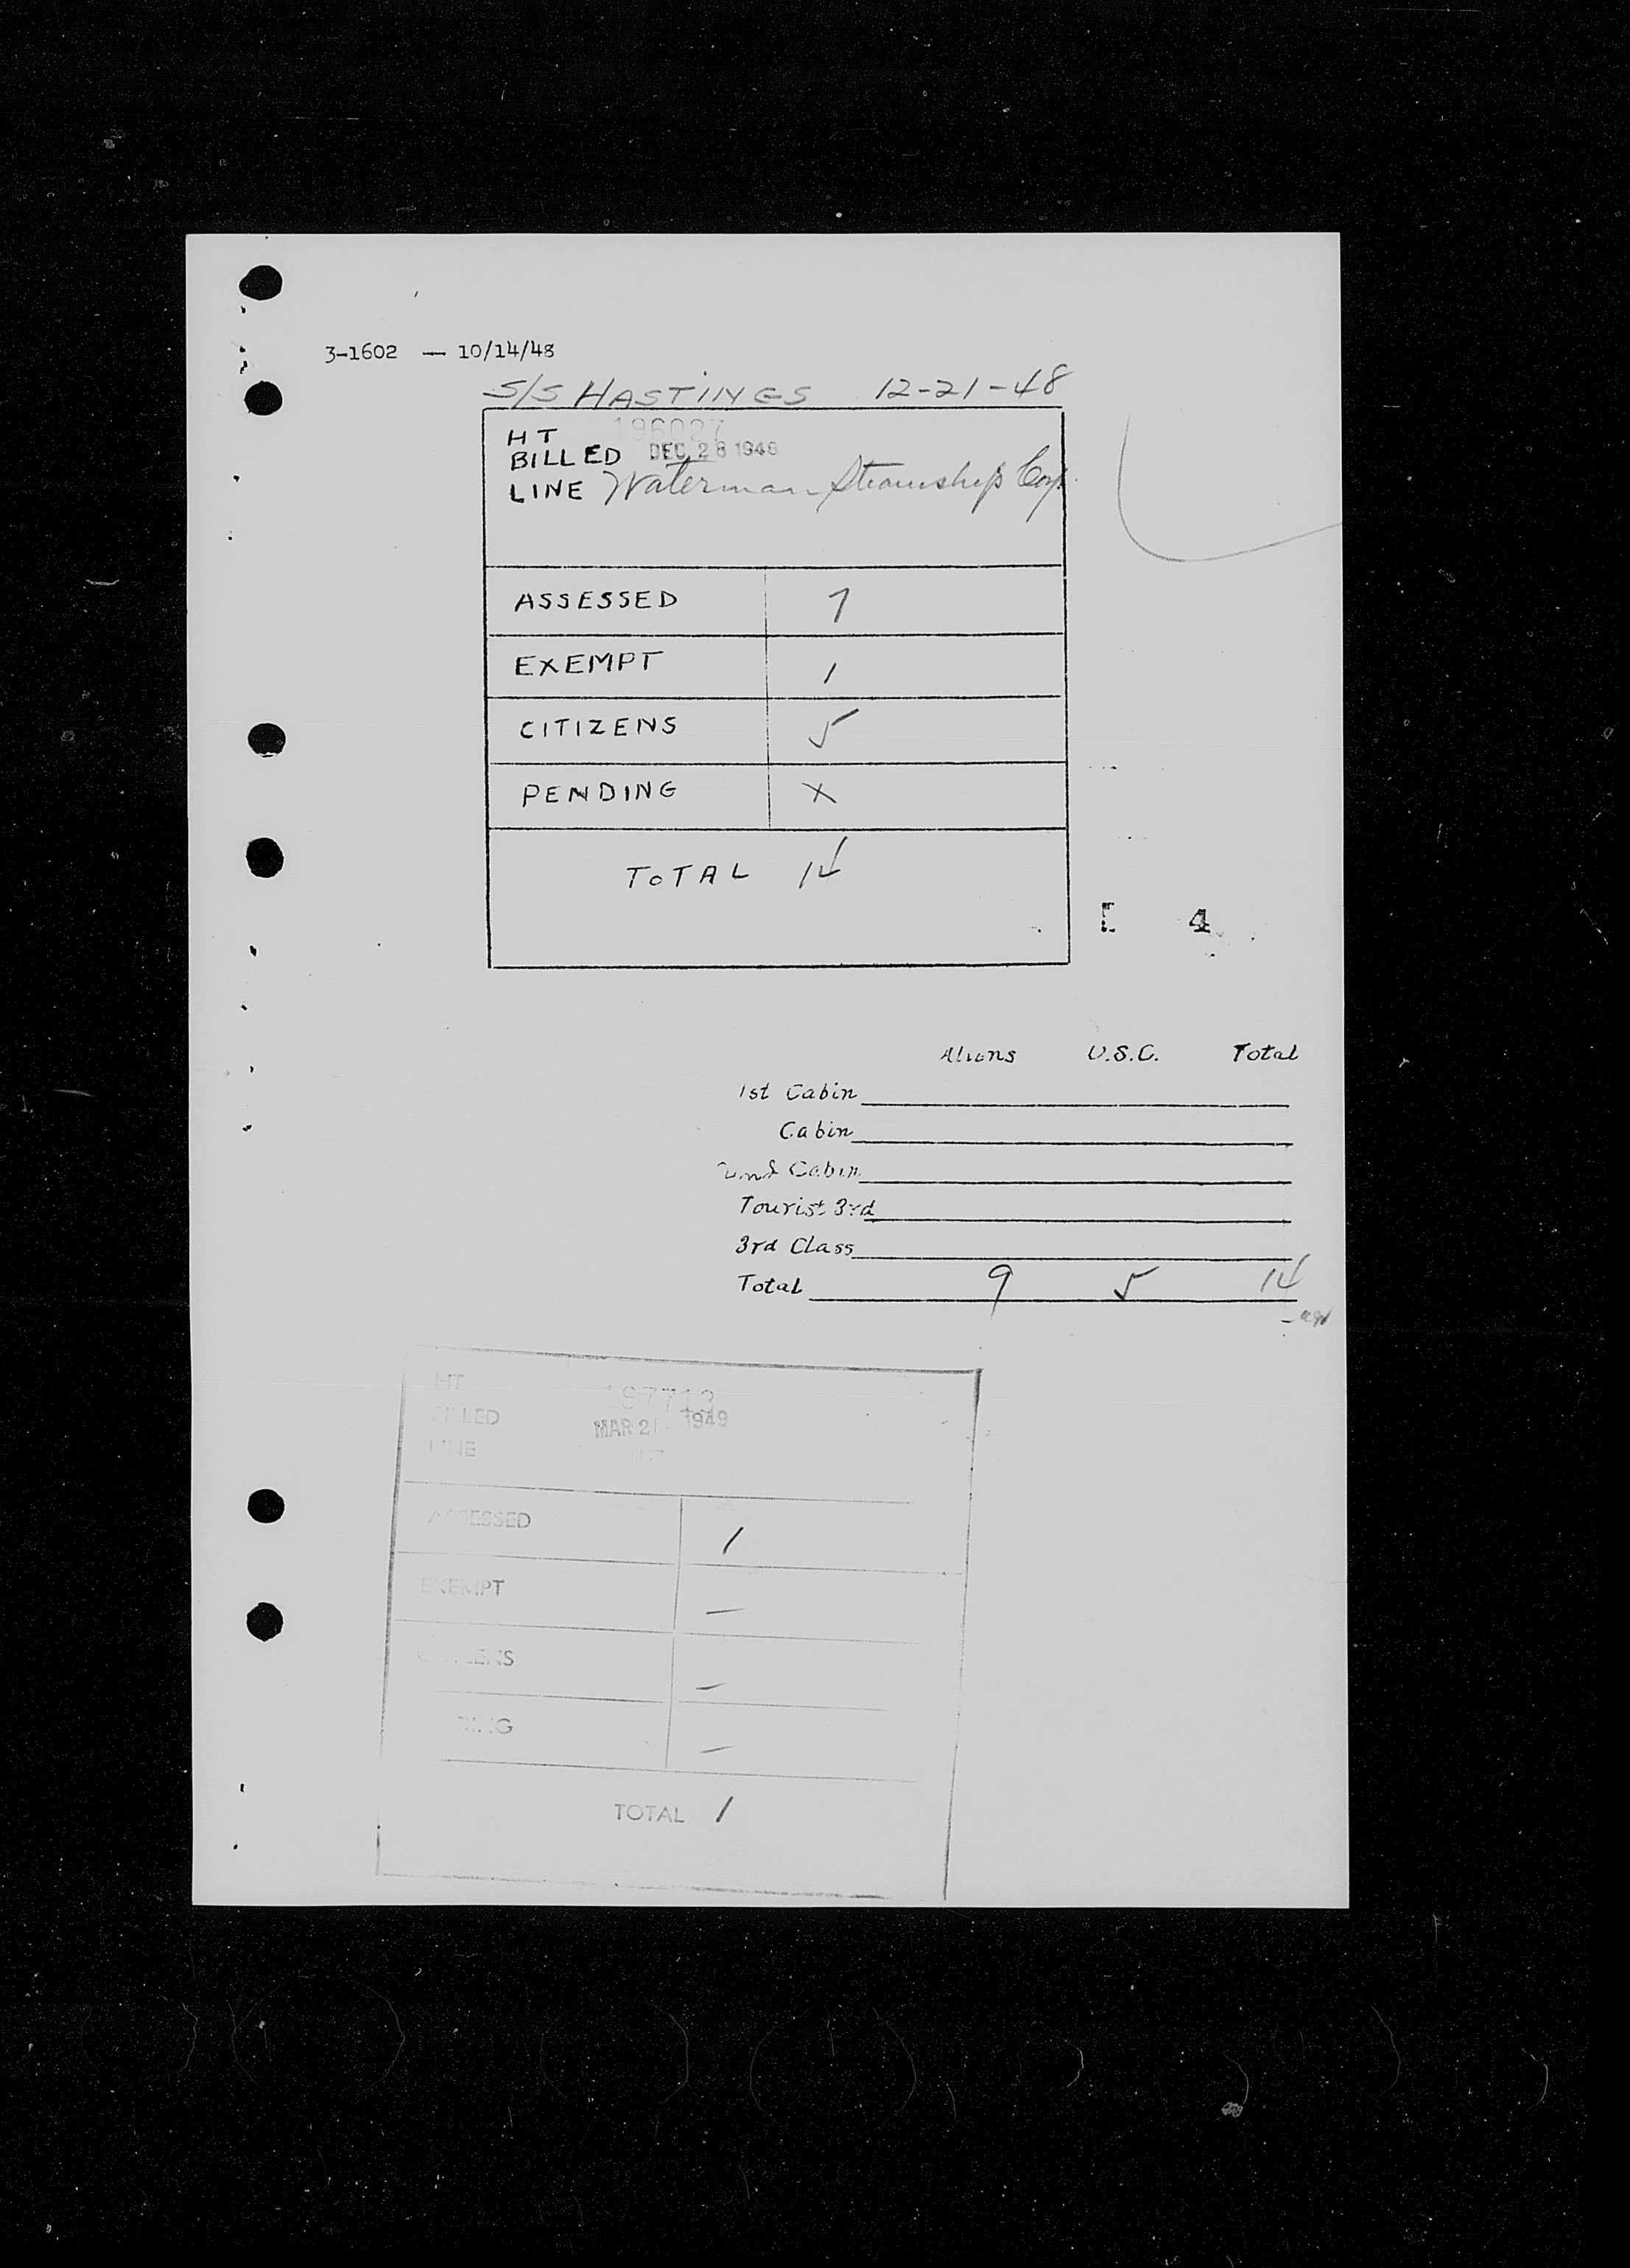 3-1602 — 10/14/48
S/S HASTINGS 12-21-48
196027
HT
BILLED DEC 28 1948
LINE Waterman Steamship Corp.
ASSESSED 7
EXEMPT 1
CITIZENS 5
PENDING X
TOTAL 14
4
Aliens U.S.C. Total
1st Cabin
Cabin
2nd Cabin
Tourist 3rd
3rd Class
Total 9 5 14
HT 197713
BILLED MAR 21 1949
LINE
ASSESSED 1
EXEMPT —
CITIZENS —
PENDING —
TOTAL 1